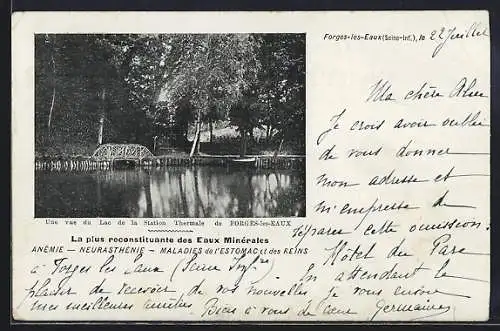 Forges-les-Eaux (Seine-Inf.), le 22 Juillet
Ma chère
Je crois avoir oublié
de vous donner
mon adresse et
m'empresse de
réparer cette omission :
Une vue du Lac de la Station Thermale de FORGES-les-EAUX
La plus reconstituante des Eaux Minérales
ANÉMIE — NEURASTHÉNIE — MALADIES de l'ESTOMAC et des REINS
Hôtel du Parc
à Forges les Eaux (Seine Infre)
En attendant le
plaisir de recevoir de vos nouvelles je vous envoie
mes meilleures amitiés. Bien à vous de cœur Germaine